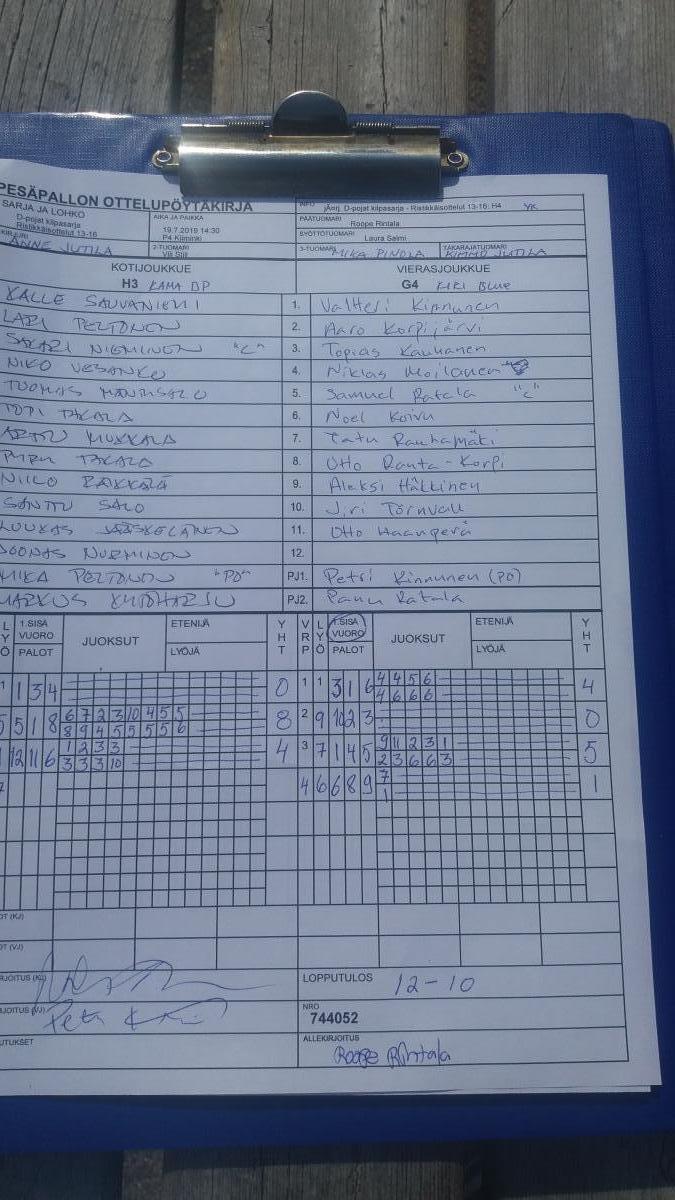 PESÄPALLON OTTELUPÖYTÄKIRJA
SARJA JA LOHKO
D-pojat kilpasarja
Ristikkäisottelut 13-16
AIKA JA PAIKKA
19.7.2019 14:30
P4 Kiiminki
INFO
jÄrrj. D-pojat kilpasarja - Ristikkäisottelut 13-16: H4 YK
PÄÄTUOMARI
Roope Rintala
SYÖTTÖTUOMARI
Laura Salmi
ANNE JUTILA
2-TUOMARI
3-TUOMARI
MIKA PINOLA
TAKARAJATUOMARI
KIMMO JUTILA
KOTIJOUKKUE
H3 KAMA DP
VIERASJOUKKUE
G4 KIRI BLUE
KALLE SAUVANIEMI 1. Valtteri Kinnunen
LARI PELTONEN 2. Aaro Korpijärvi
SAKARI NIEMINEN "C" 3. Topias Kauhanen
NIKO VESANKO 4. Niklas Moilanen
TUOMAS 5. Samuel Ratala "C"
TOPI TAKALA 6. Noel Koivu
ARTTU MUKKALA 7. Tatu Rauhamäki
TAKALA 8. Otto Ranta-Korpi
NIILO RAKKALÄ 9. Aleksi Hälkinen
SANTTU SALO 10. Jiri Törnvall
LUUKAS JÄÄSKELÄINEN 11. Otto Haanperä
JOONAS NURMINEN 12.
MIKA PELTONEN "PJ" PJ1. Petri Kinnunen (PJ)
MARKUS KUTOHARJU PJ2. Panu Ratala
1.SISÄ VUORO
PALOT
JUOKSUT
ETENIJÄ
LYÖJÄ
YHT
VRP
LYÖ
1.SISÄ VUORO
PALOT
JUOKSUT
ETENIJÄ
LYÖJÄ
YHT
1 1 3 4 0 1 1 3 1 6 4 4 5 6 4
4 6 6 6
5 5 1 8 6 7 2 3 10 4 5 5 8 2 9 10 2 3 0
8 9 4 5 5 5 5 6
12 11 6 1 2 3 3 4 3 7 1 4 5 9 11 2 3 1 5
3 3 3 10 2 3 6 6 3
4 6 6 8 9 7 1
1
LOPPUTULOS 12-10
NRO
744052
ALLEKIRJOITUS
Roope Rintala